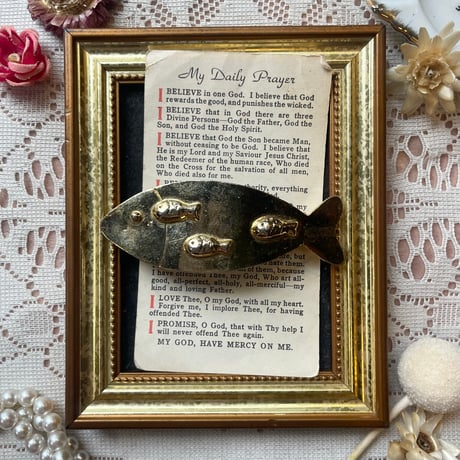 My Daily Prayer
I BELIEVE in one God. I believe that God
rewards the good, and punishes the wicked.
I BELIEVE that in God there are three
Divine Persons—God the Father, God the
Son, and God the Holy Spirit.
I BELIEVE that God the Son became Man,
without ceasing to be God. I believe that
He is my Lord and my Saviour Jesus Christ,
the Redeemer of the human race, Who died
on the Cross for the salvation of all men,
Who died also for me.
everything
my
but
hate them.
have offended Thee, my God, Who art all-
good, all-perfect, all-holy, all-merciful—my
kind and loving Father.
I LOVE Thee, O my God, with all my heart.
Forgive me, I implore Thee, for having
offended Thee.
I PROMISE, O God, that with Thy help I
will never offend Thee again.
MY GOD, HAVE MERCY ON ME.